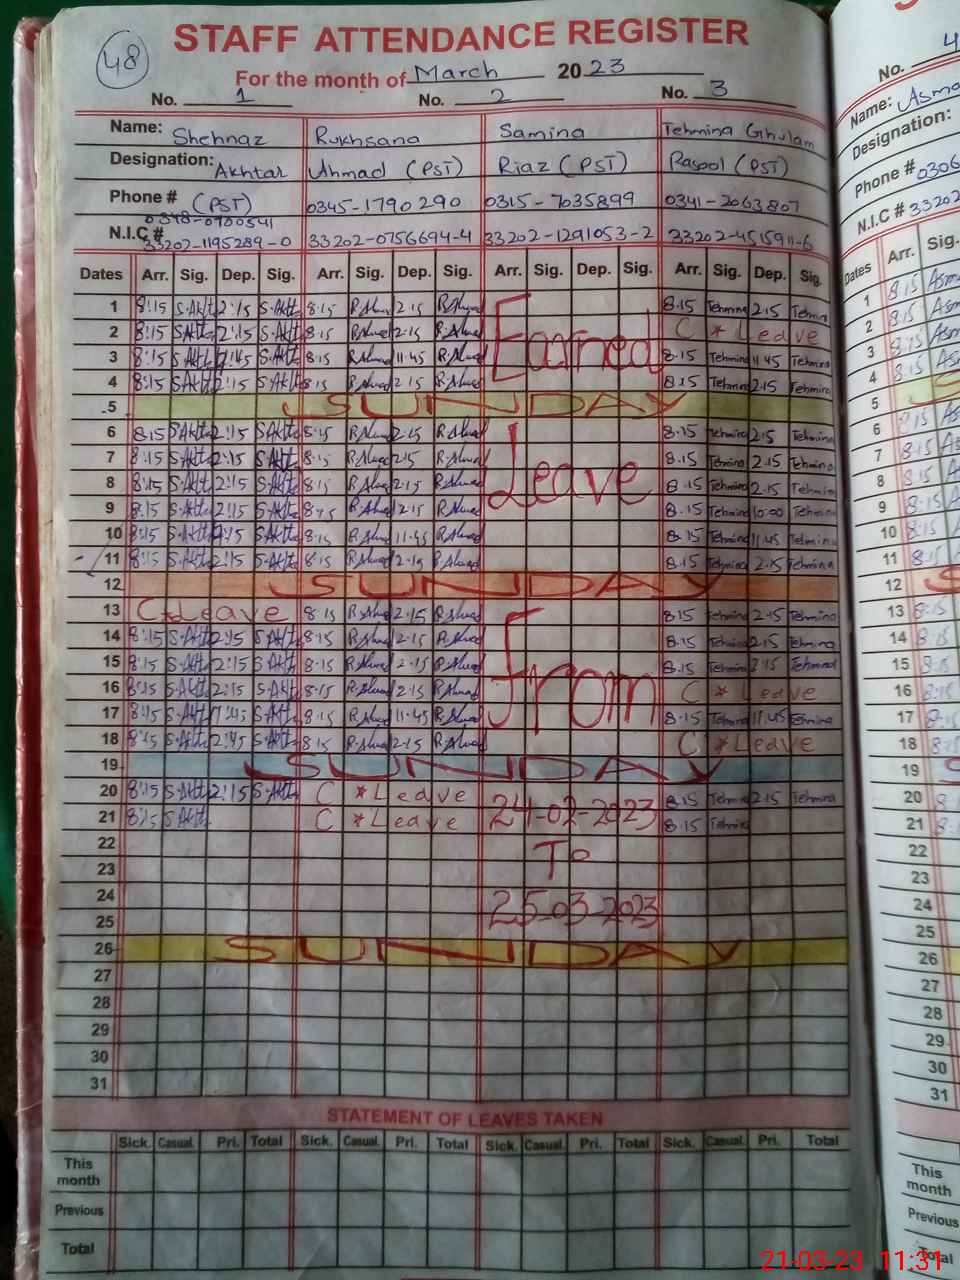 48
STAFF ATTENDANCE REGISTER
For the month of March 2023
No. 1 No. 2 No. 3
Name: Shehnaz Rukhsana Samina Tehmina Ghulam
Designation: Akhtar Ahmad (PST) Riaz (PST) Rasool (PST)
Phone # (PST) 0345-1790290 0315-7035899 0341-2063807
0348-0700541
N.I.C # 33202-1195289-0 33202-0756694-4 33202-1291053-2 33202-4515911-6
Dates Arr. Sig. Dep. Sig. Arr. Sig. Dep. Sig. Arr. Sig. Dep. Sig. Arr. Sig. Dep. Sig.
1 8:15 S.Akht 2:15 S.Akht 8:15 R.Ahmad 2.15 R.Ahmad 8.15 Tehmina 2.15 Tehmina
2 8:15 S.Akht 2:15 S.Akht 8:15 R.Ahmad 2.15 R.Ahmad Earned C * Leave
3 8:15 S.Akht 11:45 S.Akht 8:15 R.Ahmad 11.45 R.Ahmad 8.15 Tehmina 11.45 Tehmina
4 8:15 S.Akht 2:15 S.Akht 8:15 R.Ahmad 2.15 R.Ahmad 8.15 Tehmina 2.15 Tehmina
5 SUNDAY
6 8:15 S.Akht 2:15 S.Akht 8:15 R.Ahmad 2.15 R.Ahmad 8.15 Tehmina 2.15 Tehmina
7 8:15 S.Akht 2:15 S.Akht 8:15 R.Ahmad 2.15 R.Ahmad Leave 8.15 Tehmina 2.15 Tehmina
8 8:15 S.Akht 2:15 S.Akht 8:15 R.Ahmad 2.15 R.Ahmad 8.15 Tehmina 2.15 Tehmina
9 8:15 S.Akht 2:15 S.Akht 8:15 R.Ahmad 2.15 R.Ahmad 8.15 Tehmina 10:00 Tehmina
10 8:15 S.Akht S.Akht 8:15 R.Ahmad 11.45 R.Ahmad 8.15 Tehmina 11.45 Tehmina
11 8:15 S.Akht 2:15 S.Akht 8:15 R.Ahmad 2.15 R.Ahmad 8.15 Tehmina 2.15 Tehmina
12 SUNDAY
13 C * Leave 8:15 R.Ahmad 2.15 R.Ahmad 8.15 Tehmina 2.15 Tehmina
14 8:15 S.Akht 2:15 S.Akht 8:15 R.Ahmad 2.15 R.Ahmad 8.15 Tehmina 2.15 Tehmina
15 8:15 S.Akht 2:15 S.Akht 8:15 R.Ahmad 2.15 R.Ahmad From 8.15 Tehmina 2.15 Tehmina
16 8:15 S.Akht 2:15 S.Akht 8:15 R.Ahmad 2.15 R.Ahmad C * Leave
17 8:15 S.Akht 11:45 S.Akht 8:15 R.Ahmad 11.45 R.Ahmad 8.15 Tehmina 11.45 Tehmina
18 8:15 S.Akht S.Akht 8:15 R.Ahmad 2.15 R.Ahmad C * Leave
19 SUNDAY
20 8:15 S.Akht 2:15 S.Akht C * Leave 24-02-2023 8.15 Tehmina 2.15 Tehmina
21 8:15 S.Akht C * Leave 8.15 Tehmina
22 To
23
24 25-03-2023
25
26 SUNDAY
27
28
29
30
31
STATEMENT OF LEAVES TAKEN
Sick. Casual. Pri. Total Sick. Casual. Pri. Total Sick. Casual. Pri. Total Sick. Casual. Pri. Total
This month
Previous
Total
No. 4
Name: Asma
Designation:
Phone # 0306
N.I.C # 33202
Dates Arr. Sig.
1 8:15
2 8:15
3 8:15
4 8:15
5
6 8:15
7 8:15
8 8:15
9 8:15
10 8:15
11 8:15
12
13 8:15
14 8:15
15
16
17
18
19
20
21
22
23
24
25
26
27
28
29
30
31
This month
Previous
Total
21-03-23 11:31